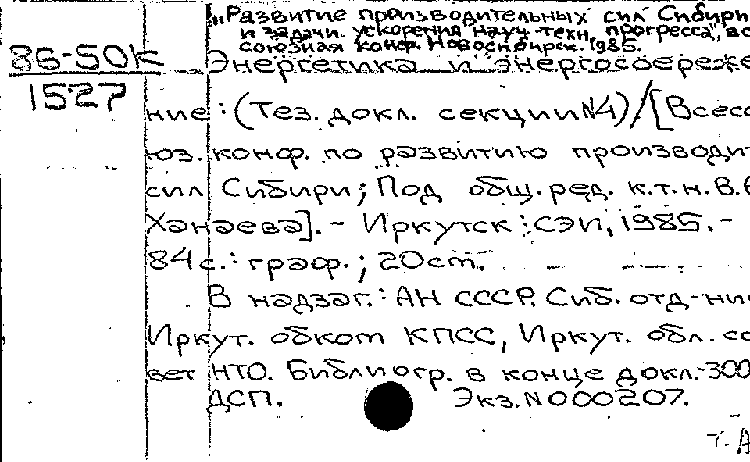 „Развитие производительных сил Сибири
и задачи ускорения науч-техн. прогресса", вс
союзная конф. Новосибирск. 1985.
86-50К
Энергетика и энергосбереже
1527
ние: (Тез. докл. секции №4) / [Всесо
юз. конф. по развитию производит
сил Сибири; Под общ. ред. к.т.н. В.В
Ханаева]. - Иркутск: СЭИ, 1985. -
84 с.: граф.; 20 ст.
В надзаг.: АН СССР. Сиб. отд-ни
Иркут. обком КПСС, Иркут. обл. со
вет НТО. Библиогр. в конце докл.- 300
ДСП. Экз. N 000207.
т. А